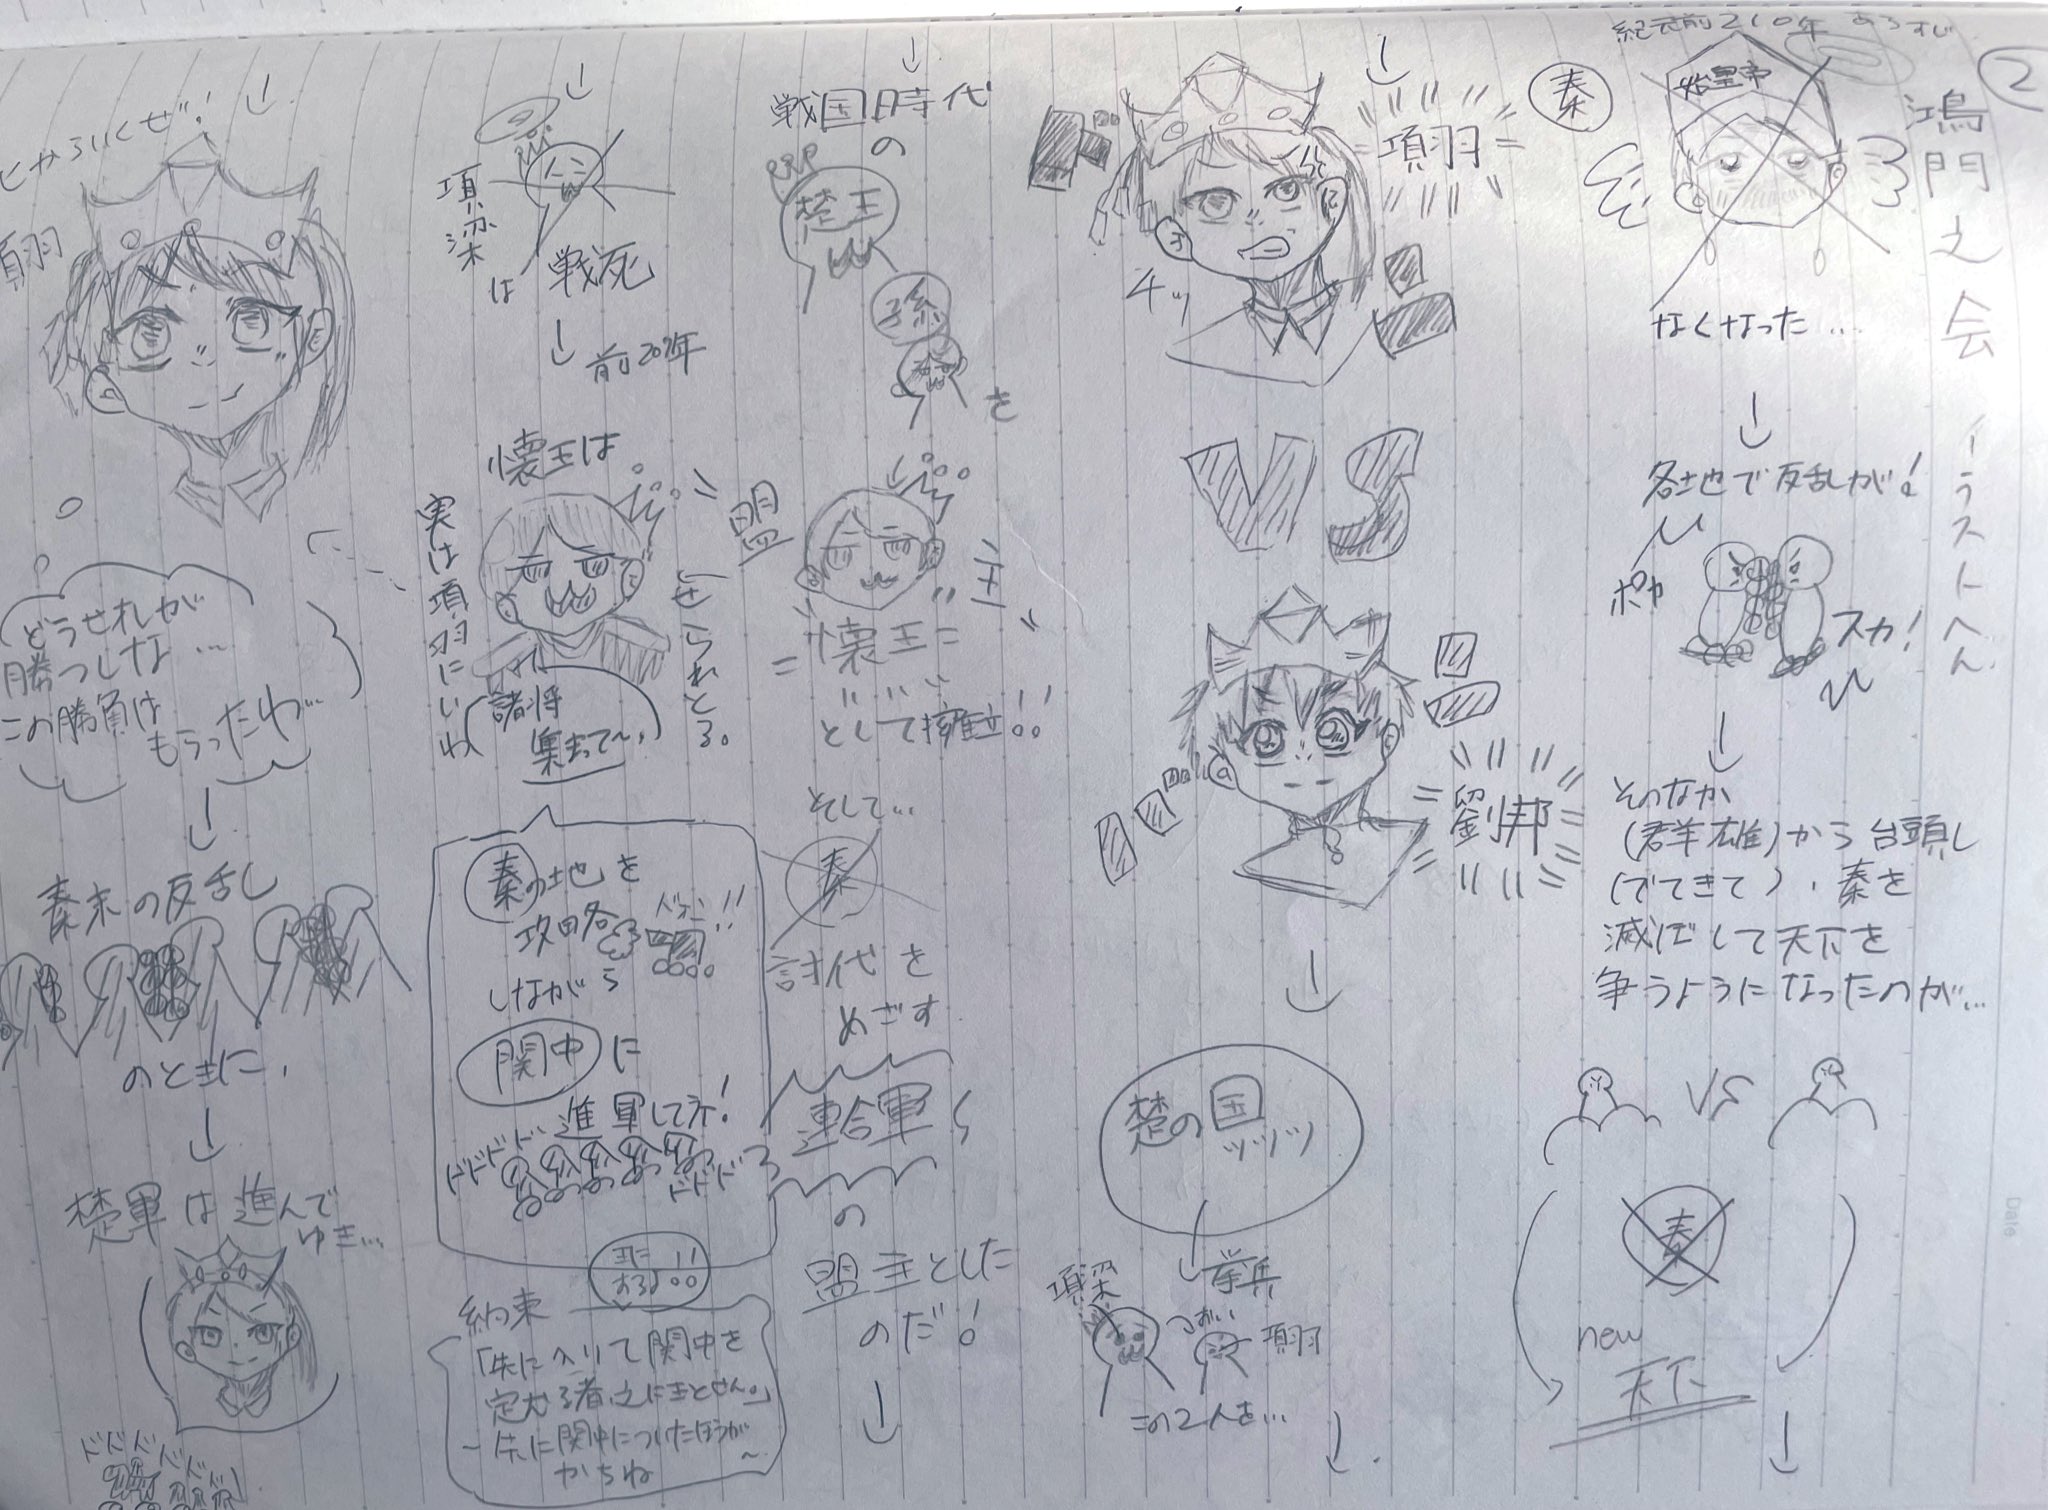 ②
鴻門之会
イラストへん
紀元前210年 あらすじ
始皇帝
秦
なくなった…
各地で反乱が!
ポカ
スカ!
そのなか
(群雄)から台頭し
(でてきて)、秦を
滅ぼして天下を
争うようになったのが…
VS
秦
new
天下
項羽
チッ
VS
劉邦
楚の国
ッッッッ
挙兵
項梁
項羽
この2人を…
戦国時代
の
楚王
孫
を
盟
主
懐王
として擁立!!
そして…
秦
討代を
めざす
連合軍
の
盟主とした
のだ!
項梁
は
戦死
前202年
懐王は
実は項羽にいわ
せられとる。
諸将
集まって〜、
秦の地を
攻略
ドォン!!
しながら
関中に
進軍してネ!
ドドドド
ドドドド
王に
する!!
約束
「先に入りて関中を
定むる者、之に王とせん。」
〜先に関中についたほうが
かちね〜
じゃあいくぜ!
項羽
どうせオレが
勝つしな…
この勝負は
もらったわ…
秦末の反乱
のときに、
楚軍は進んで
ゆき…
ドドドドド